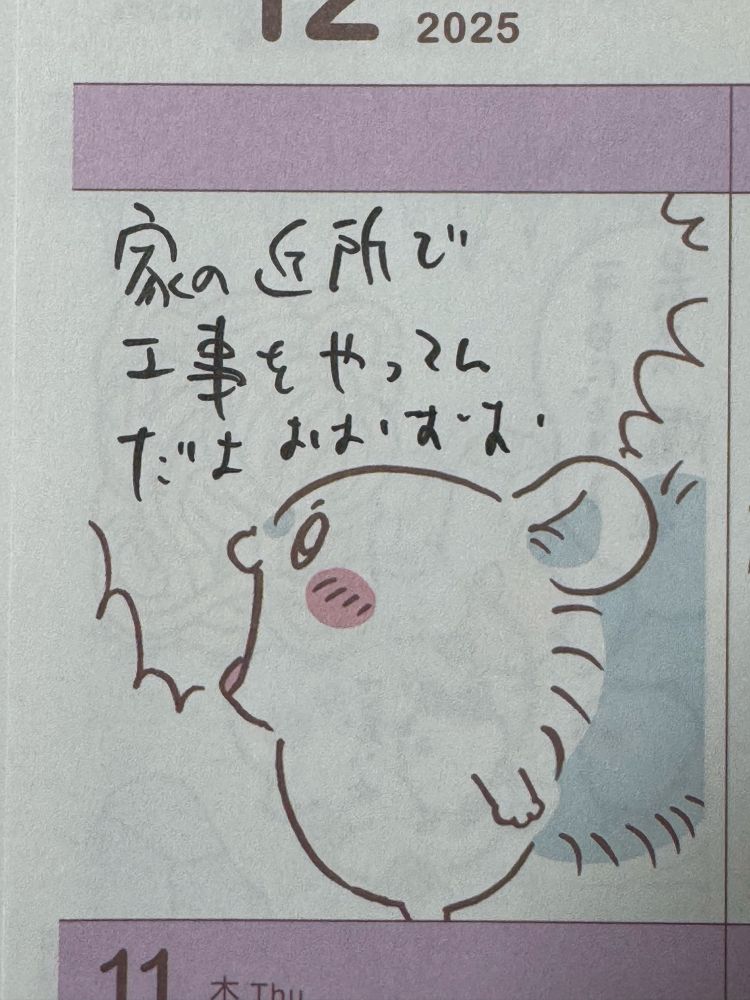 12 2025
家の近所で
工事をやってん
だよ
11 木 Thu